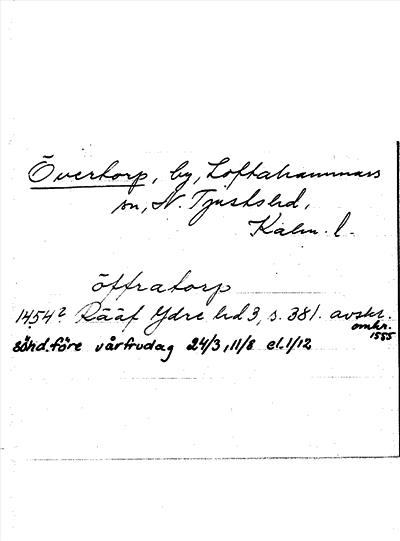 Övertorp, by, Loftahammars
sn, N. Tjusts hd,
Kalm. l.
öffratorp
1454? Rääf Ydre hd 3, s. 381. avskr.
omkr.
1555
sönd. före vårfrudag 24/3, 11/8 el. 1/12